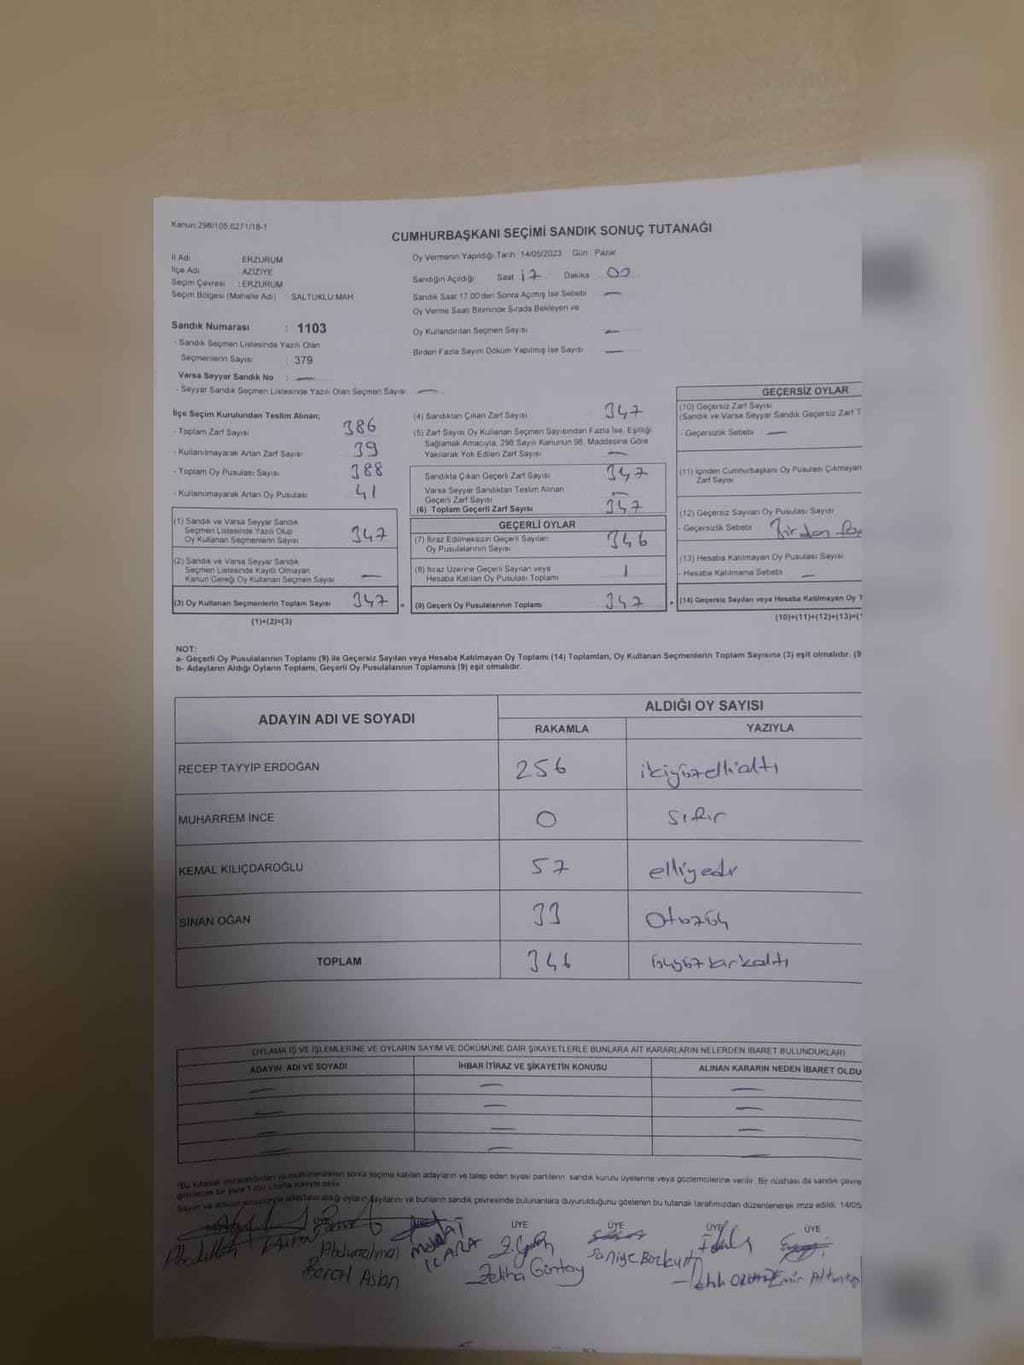 Kanun:298/105,6271/18-1
CUMHURBAŞKANI SEÇİMİ SANDIK SONUÇ TUTANAĞI
İl Adı ERZURUM
İlçe Adı AZİZİYE
Seçim Çevresi : ERZURUM
Seçim Bölgesi (Mahalle Adı) SALTUKLU MAH
Sandık Numarası : 1103
- Sandık Seçmen Listesinde Yazılı Olan
Seçmenlerin Sayısı : 379
Varsa Seyyar Sandık No : —
- Seyyar Sandık Seçmen Listesinde Yazılı Olan Seçmen Sayısı —
Oy Vermenin Yapıldığı Tarih 14/05/2023 Gün Pazar
Sandığın Açıldığı Saat 17 Dakika 00
Sandık Saat 17.00'den Sonra Açımış İse Sebebi —
Oy Verme Saati Bitiminde Sırada Bekleyen ve
Oy Kullandırılan Seçmen Sayısı —
Birden Fazla Sayım Döküm Yapılmış İse Sayısı —
İlçe Seçim Kurulundan Teslim Alınan;
- Toplam Zarf Sayısı 386
- Kullanılmayarak Artan Zarf Sayısı 39
- Toplam Oy Pusulası Sayısı 388
- Kullanılmayarak Artan Oy Pusulası 41
(1) Sandık ve Varsa Seyyar Sandık
Seçmen Listesinde Yazılı Olup
Oy Kullanan Seçmenlerin Sayısı 347
(2) Sandık ve Varsa Seyyar Sandık
Seçmen Listesinde Kayıtlı Olmayan
Kanun Gereği Oy Kullanan Seçmen Sayısı —
(3) Oy Kullanan Seçmenlerin Toplam Sayısı 347
(1)+(2)=(3)
(4) Sandıktan Çıkan Zarf Sayısı 347
(5) Zarf Sayısı Oy Kullanan Seçmen Sayısından Fazla İse, Eşitliği
Sağlamak Amacıyla, 298 Sayılı Kanunun 98. Maddesine Göre
Yakılarak Yok Edilen Zarf Sayısı —
Sandıkta Çıkan Geçerli Zarf Sayısı 347
Varsa Seyyar Sandıktan Teslim Alınan
Geçerli Zarf Sayısı —
(6) Toplam Geçerli Zarf Sayısı 347
GEÇERLİ OYLAR
(7) İtiraz Edilmeksizin Geçerli Sayılan
Oy Pusulalarının Sayısı 346
(8) İtiraz Üzerine Geçerli Sayılan veya
Hesaba Katılan Oy Pusulası Toplamı 1
(9) Geçerli Oy Pusulalarının Toplamı 347
GEÇERSİZ OYLAR
(10) Geçersiz Zarf Sayısı
(Sandık ve Varsa Seyyar Sandık Geçersiz Zarf T
- Geçersizlik Sebebi —
(11) İçinden Cumhurbaşkanı Oy Pusulası Çıkmayan
Zarf Sayısı
(12) Geçersiz Sayılan Oy Pusulası Sayısı
- Geçersizlik Sebebi Birden
(13) Hesaba Katılmayan Oy Pusulası Sayısı
- Hesaba Katılmama Sebebi —
(14) Geçersiz Sayılan veya Hesaba Katılmayan Oy T
(10)+(11)+(12)+(13)=(
NOT:
a- Geçerli Oy Pusulalarının Toplamı (9) ile Geçersiz Sayılan veya Hesaba Katılmayan Oy Toplamı (14) Toplamları, Oy Kullanan Seçmenlerin Toplam Sayısına (3) eşit olmalıdır. (9
b- Adayların Aldığı Oyların Toplamı, Geçerli Oy Pusulalarının Toplamına (9) eşit olmalıdır.
ADAYIN ADI VE SOYADI ALDIĞI OY SAYISI
RAKAMLA YAZIYLA
RECEP TAYYİP ERDOĞAN 256 ikiyüzellialtı
MUHARREM İNCE 0 sıfır
KEMAL KILIÇDAROĞLU 57 elliyedi
SİNAN OĞAN 33 Otuzüç
TOPLAM 346 üçyüzkırkaltı
OYLAMA İŞ VE İŞLEMLERİNE VE OYLARIN SAYIM VE DÖKÜMÜNE DAİR ŞİKAYETLERLE BUNLARA AİT KARARLARIN NELERDEN İBARET BULUNDUKLARI
ADAYIN ADI VE SOYADI İHBAR İTİRAZ VE ŞİKAYETİN KONUSU ALINAN KARARIN NEDEN İBARET OLDU
sonra seçime katılan adayların ve talep eden siyasi partilerin sandık kurulu üyelerine veya gözlemcilerine verilir. Bir nüshası da sandık çevre
sayılarını ve bunların sandık çevresinde bulunanlara duyurulduğunu gösteren bu tutanak tarafımızdan düzenlenerek imza edildi. 14/05
ÜYE ÜYE ÜYE ÜYE
Zeliha Güntay Saniye Bozkurt
Aslan